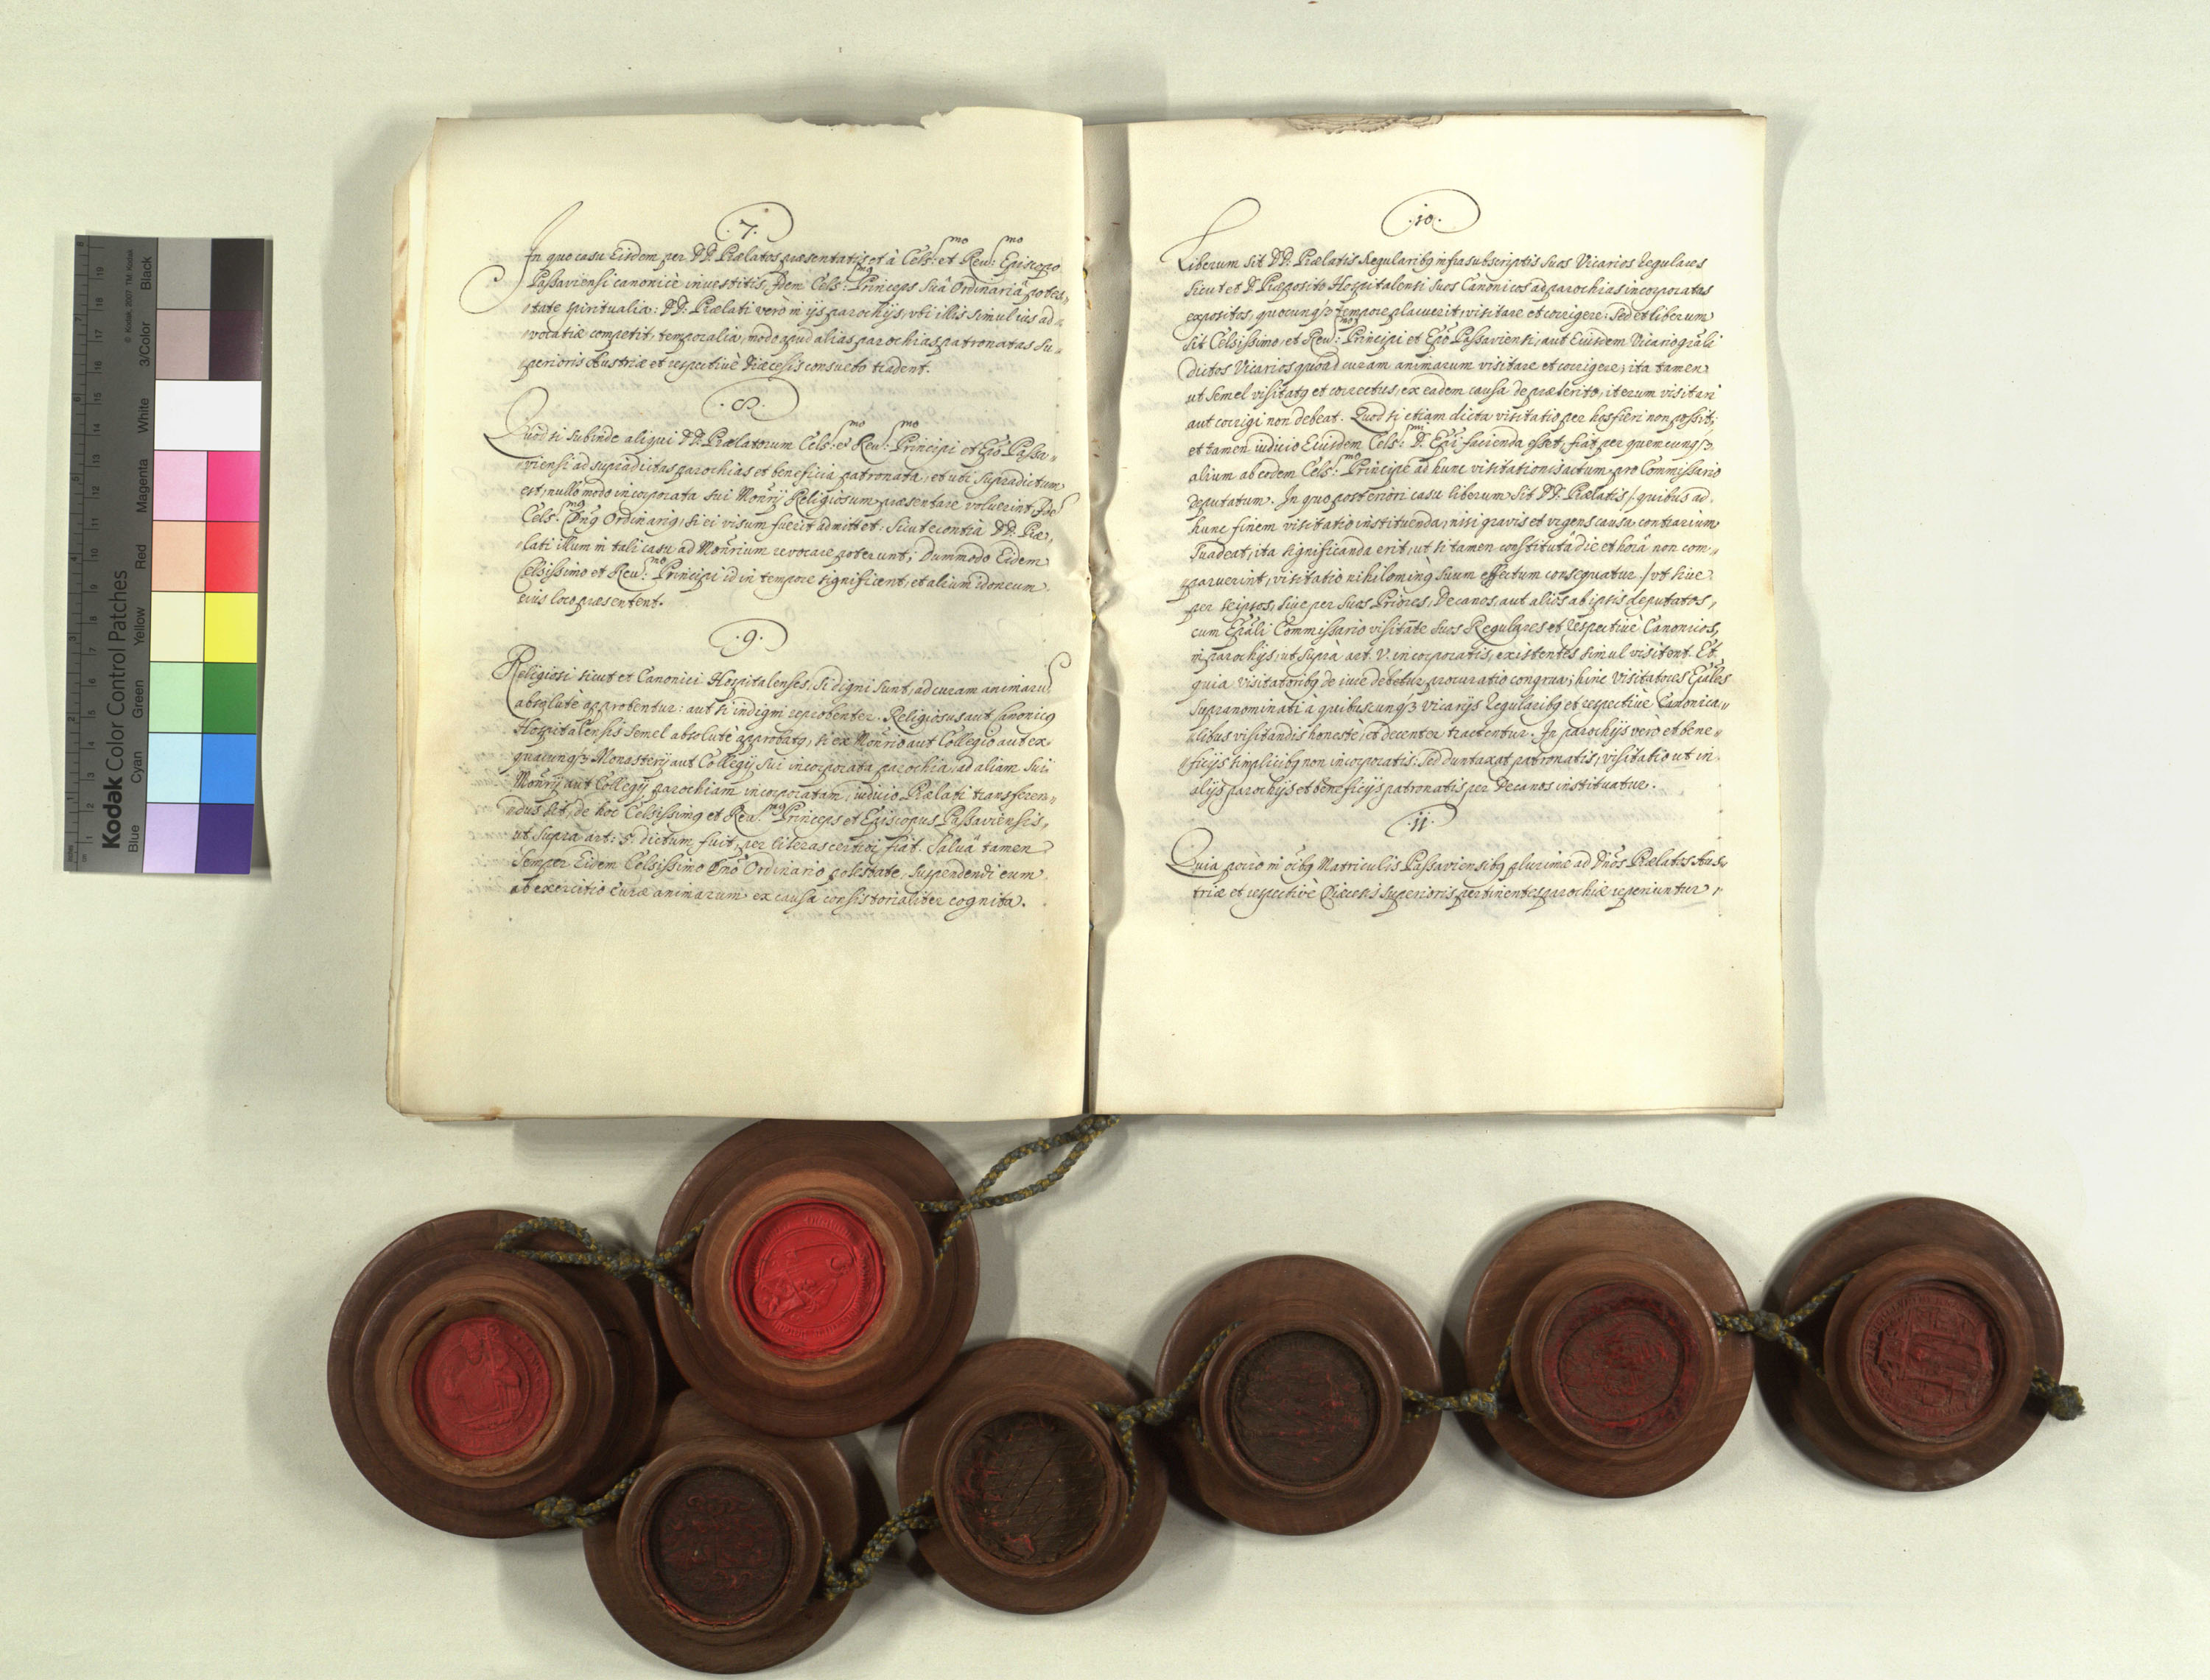 Kodak Color Control Patches
© Kodak, 2007 TM: Kodak
Blue Cyan Green Yellow Red Magenta White 3/Color Black
.7.
In quo casu Eisdem per DD: Prælatos præsentatis et à Cels:mo et Reu:mo Episcopo
Passauiensi canonicè inuestitis, Idem Cels:mus Princeps suâ Ordinariâ potes„
„tate spiritualia: DD: Prælati verò in ijs parochijs, vbi illis simul ius ad„
„vocatiæ competit, temporalia, modo apud alias parochias patronatas Su„
„perioris Austriæ et respectiuè Diœcesis consueto tradent.
.8.
Quod si subinde aliqui DD: Prælatorum Cels:mo et Reu:mo Principi et Epo Passa„
„viensi ad supradictas parochias et beneficia patronata, et uti supradictum
est, nullo modo incorporata sui Monrij Religiosum præsentare voluerint, Ide
Cels:mus Dnus Ordinarius, si ei visum fuerit admittet: Sicut econtra DD: Præ„
„lati illum in tali casu ad Monrium revocare poterunt; Dummodo Eidem
Celsissimo et Reu:mo Principi id in tempore significent, et alium idoneum
eius loco præsentent.
.9.
Religiosi sicut et Canonici Hospitalenses, si digni sunt, ad curam animaru
absolutè approbentur: aut si indigni reprobentur. Religiosus aut Canonicus
Hospitalensis semel absolutè approbatus, si ex Monrio aut Collegio aut ex
quacunque Monasterij aut Collegij sui incorporata parochia, ad aliam sui
Monrij aut Collegij parochiam incorporatam, iudicio Prælati transferen„
„dus sit, de hoc Celsissimus et Reu:mus Princeps et Episcopus Passauiensis,
ut supra art: 5. dictum fuit, per literas certior fiat. Saluâ tamen
semper Eidem Celsissimo Dno Ordinario potestate, suspendendi eum
ab exercitio curæ animarum ex causa consistorialiter cognita.
.10.
Liberum sit DD: Prælatis Regularibus infrasubscriptis suos Vicarios Regulares
sicut et D: Præposito Hospitalensi suos Canonicos ad parochias incorporatas
expositos, quocunque tempore placuerit, visitare et corrigere: Sed et liberum
sit Celsissimo, et Reu:mo Principi et Epo Passauiensi, aut Eiusdem Vicario grali
dictos Vicarios quoad curam animarum visitare et corrigere, ita tamen
ut semel visitatus et correctus, ex eadem causa de præterito, iterum visitari
aut corrigi non debeat. Quod si etiam dicta visitatio per hos fieri non possit,
et tamen iudicio Eiusdem Cels:mi D: Epi facienda esset, fiat per quemcunque
alium ab eodem Cels:mo Principe ad hunc visitationis actum pro Commissario
deputatum. In quo posteriori casu liberum sit DD: Prælatis /: quibus ad
hunc finem visitatio instituenda, nisi gravis et vrgens causa contrarium
suadeat, ita significanda erit, ut si tamen constitutâ die et horâ non com„
„paruerint, visitatio nihilominus suum effectum consequatur :/ vt siue
per seipsos, siue per suos Priores, Decanos, aut alios ab ipsis deputatos,
cum Epali Commissario visitate suos Regulares et respectiuè Canonicos,
in parochijs, ut suprà art. V. incorporatis, existentes simul visitent. Et
quia visitatoribus de iure debetur procuratio congrua; hinc Visitatores Epales
supranominati à quibuscunque vicarijs Regularibus et respectiuè Canonica„
„libus visitandis honestè, et decenter tractentur. In parochijs verò et bene„
„ficijs simplicibus non incorporatis: sed duntaxat patronatis, visitatio ut in
alijs parochijs et beneficijs patronatis per Decanos instituatur.
.11.
Quia porrò in oibus Matriculis Passauiensibus plurimæ ad Dnos Prælatos Aus„
triæ et respectivè Diœcesis superioris pertinentes parochiæ reperiuntur,